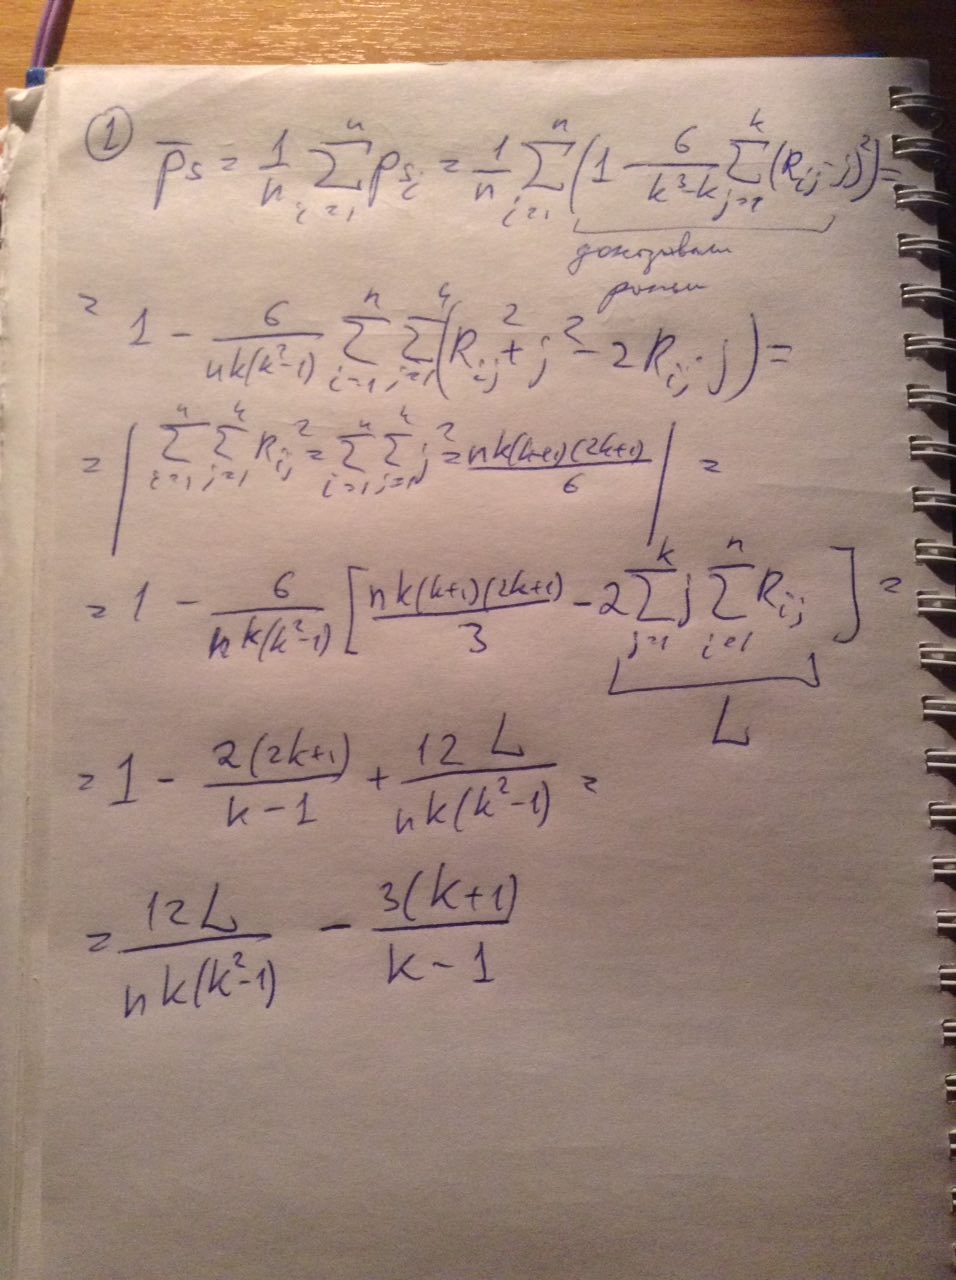 ① ρ̄s = 1/n Σ_{i=1}^{n} ρs_i = 1/n Σ_{i=1}^{n} (1 - 6/(k³-k) Σ_{j=1}^{k} (R_{ij} - j)²) =
доказывали
раньше
= 1 - 6/(nk(k²-1)) Σ_{i=1}^{n} Σ_{j=1}^{k} (R_{ij}² + j² - 2R_{ij} j) =
= | Σ_{i=1}^{n} Σ_{j=1}^{k} R_{ij}² = Σ_{i=1}^{n} Σ_{j=1}^{k} j² = nk(k+1)(2k+1)/6 | =
= 1 - 6/(nk(k²-1)) [ nk(k+1)(2k+1)/3 - 2 Σ_{j=1}^{k} j Σ_{i=1}^{n} R_{ij} ] =
L
= 1 - 2(2k+1)/(k-1) + 12L/(nk(k²-1)) =
= 12L/(nk(k²-1)) - 3(k+1)/(k-1)